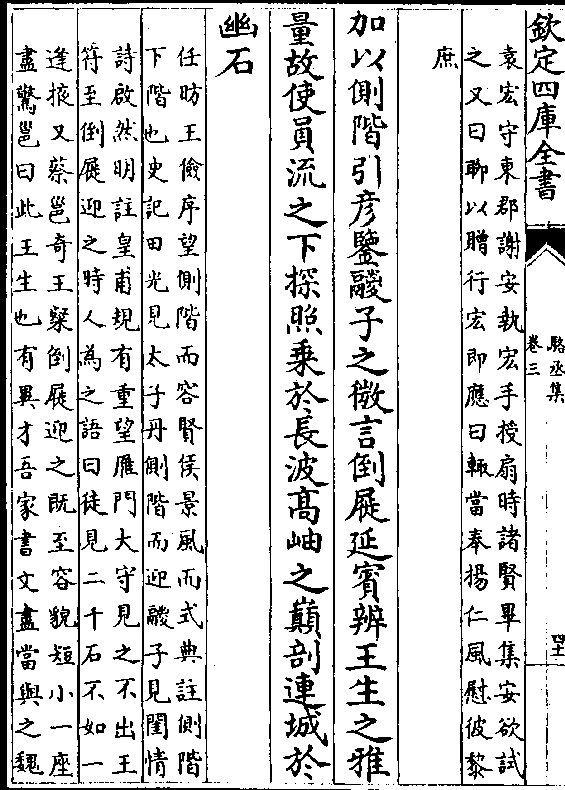 欽定四庫全書
駱丞集
卷三
四十一
袁宏守東郡謝安執宏手授扇時諸賢畢集安欲試
之又曰聊以贈行宏即應曰輒當奉揚仁風慰彼黎
庶
加以側階引彦鑒鬷子之微言倒屣延賓辨王生之雅
量故使員流之下探照乗於長波髙岫之巔剖連城於
幽石
任昉王儉序望側階而容賢𠉀景風而式典註側階
下階也史記田光見太子丹側階而迎鬷子見閨情
詩啟然明註皇甫規有重望雁門大守見之不出王
符至倒屣迎之時人為之語曰徒見二千石不如一
逢掖又蔡邕奇王粲倒屣迎之既至容貌短小一座
盡驚邕曰此王生也有異才吾家書文盡當與之魏